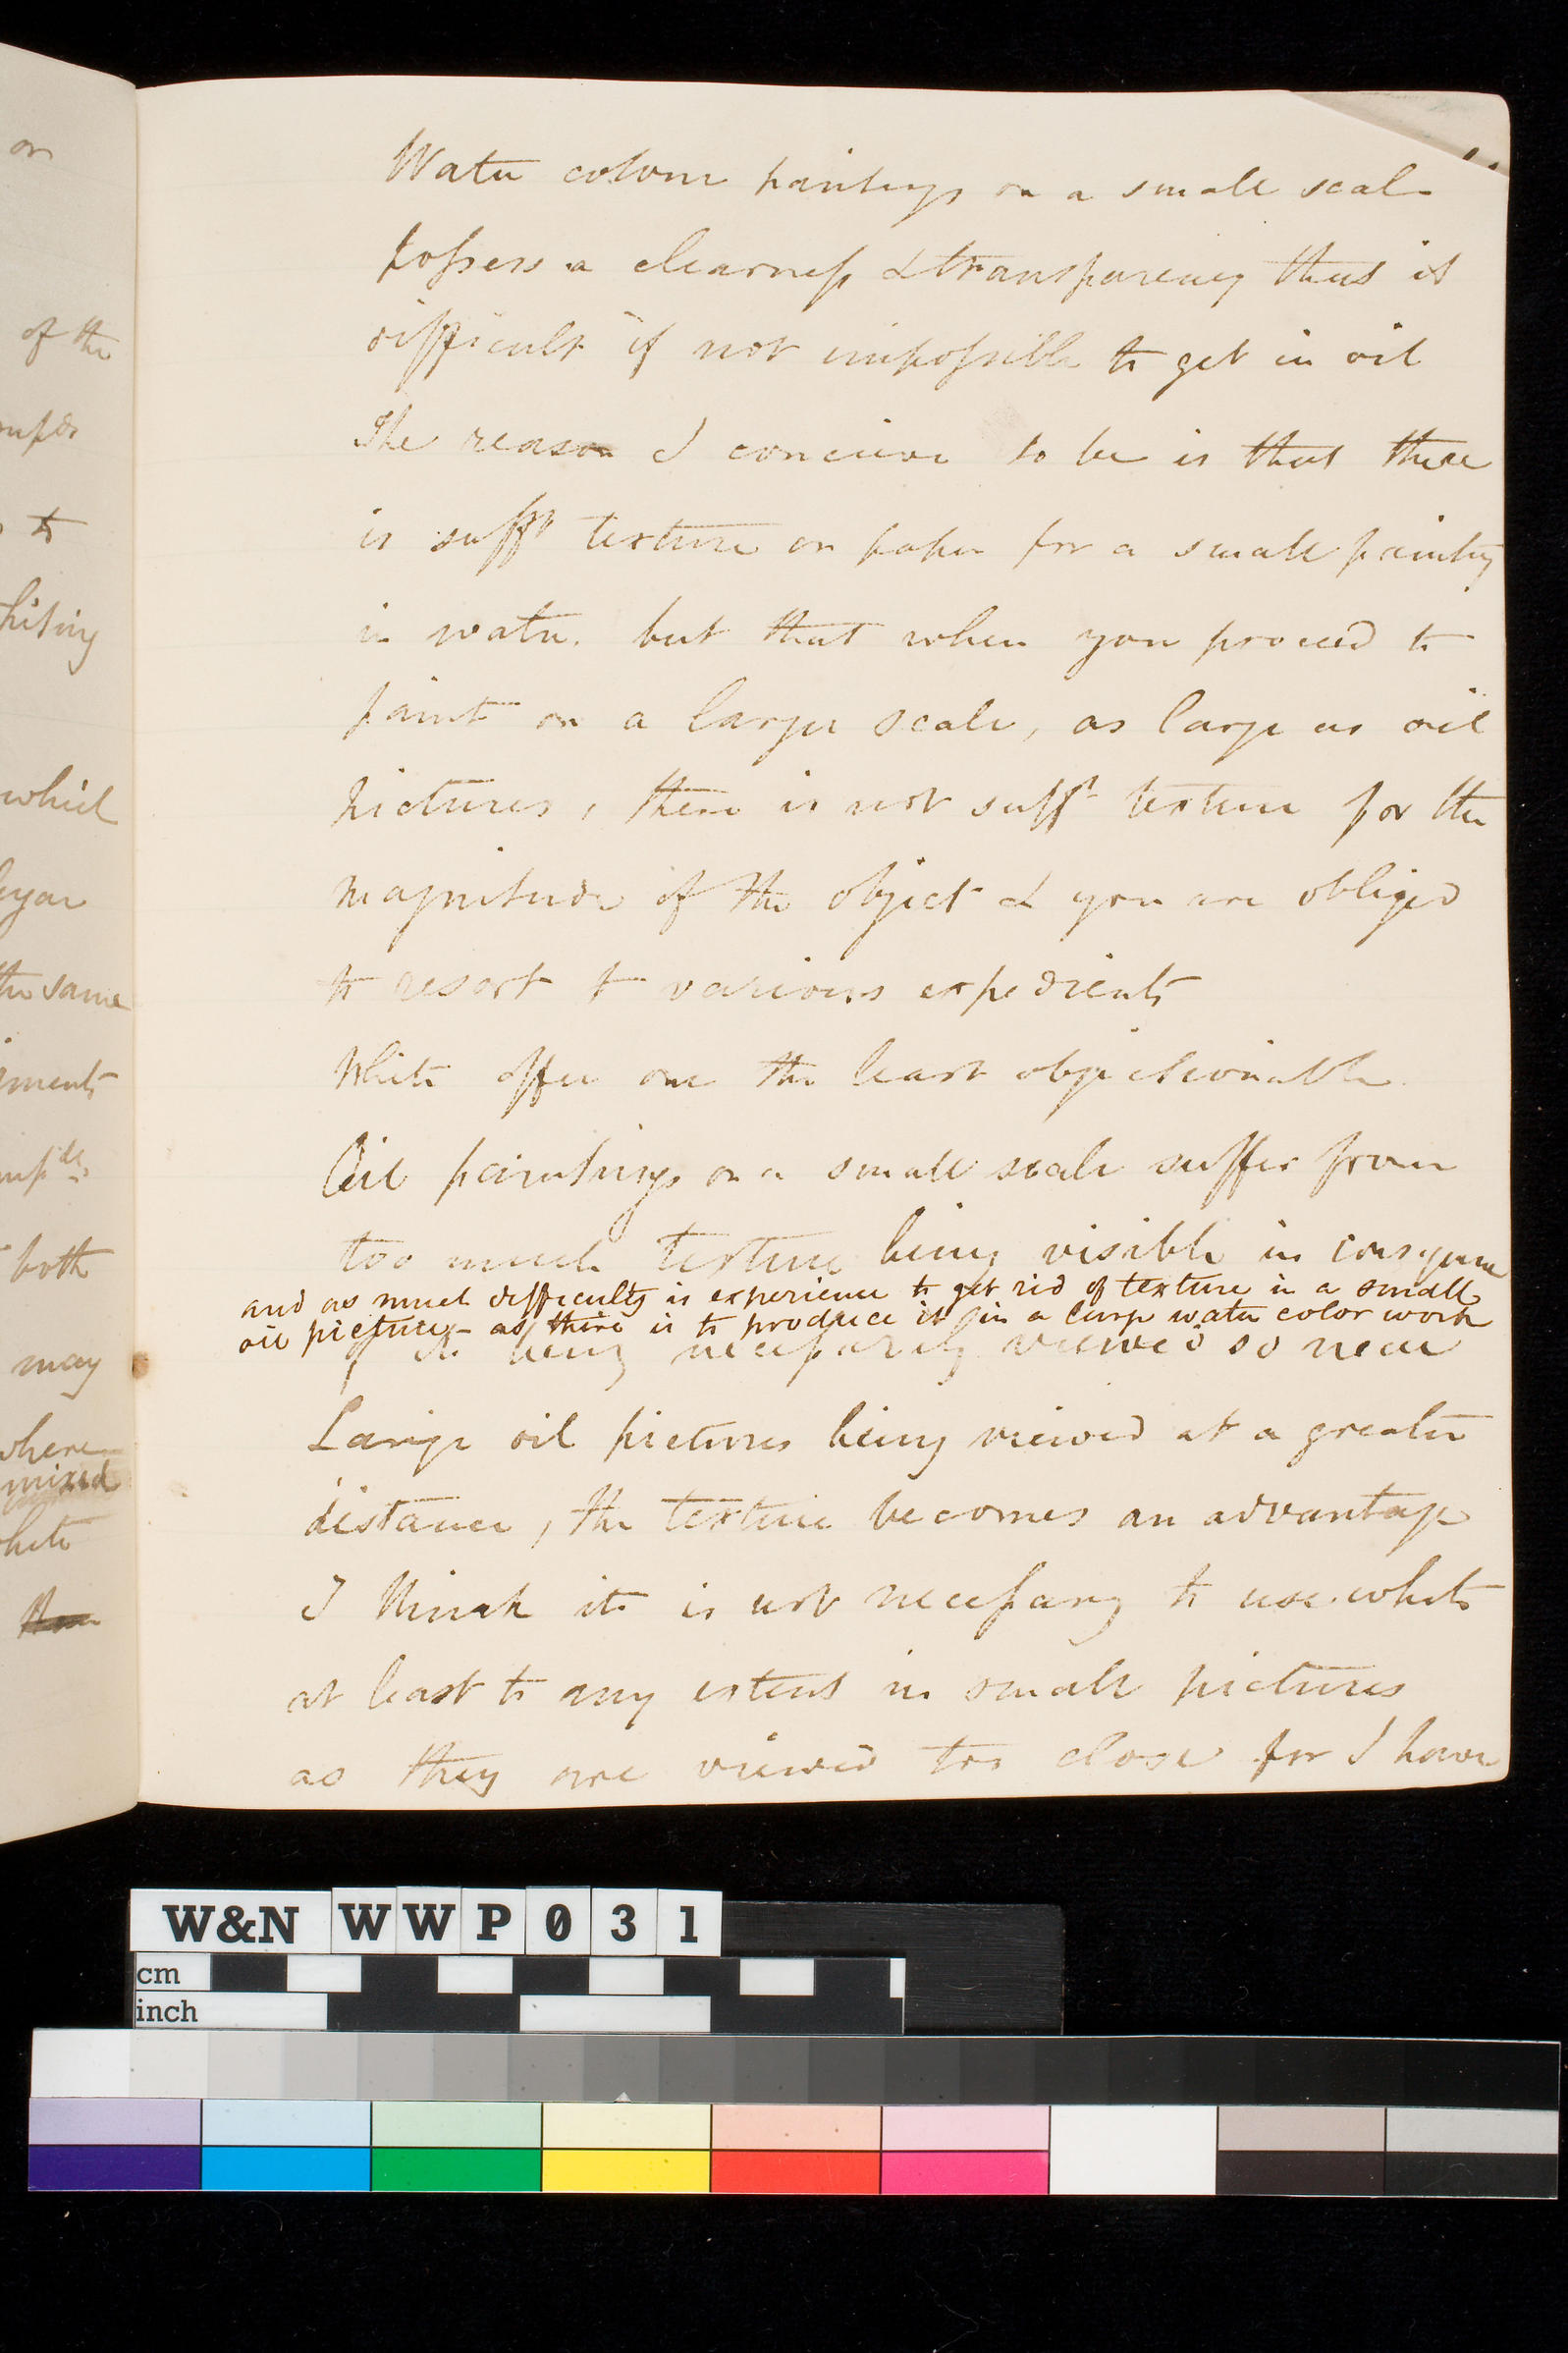 on
of the
to
which
the same
both
may
where
mixed
Water colour paintings on a small scale
possess a clearness & transparency that is
difficult if not impossible to get in oil
The reason I conceive to be is that there
is suff^t texture on paper for a small painting
in water. but that when you proceed to
paint on a larger scale, as large as oil
pictures, there is not suff^t texture for the
magnitude of the object & you are obliged
to resort to various expedients
White offer one the least objectionable.
Oil paintings on a small scale suffer from
too much texture being visible in consequence
and as much difficulty is experience to get rid of texture in a small
oil picture - as there is to produce it in a large water color work
of its being necessarily viewed so near
Large oil pictures being viewed at a greater
distance, the texture becomes an advantage
I think it is not necessary to use white
at least to any extent in small pictures
as they are viewed too close for I have
W&N WWP031
cm
inch